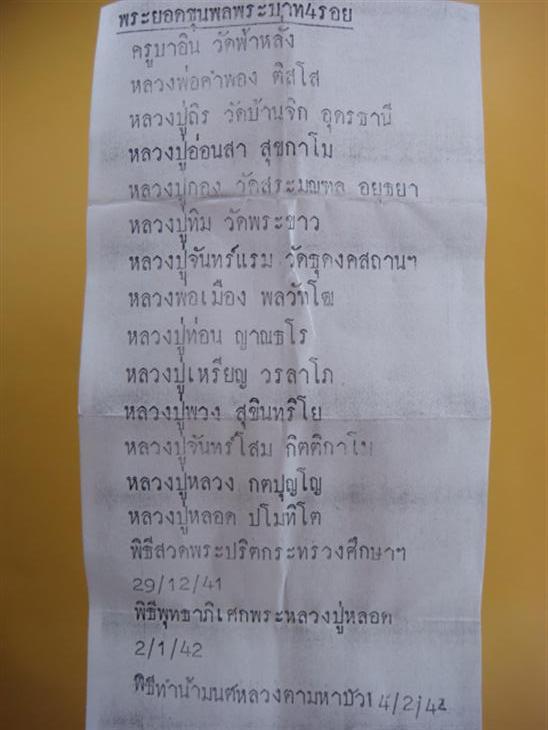 พระยอดขุนพลพระบาท4รอย
ครูบาอิน วัดฟ้าหลั่ง
หลวงพ่อคำพอง ติสโส
หลวงปู่ถิร วัดบ้านจิก อุดรธานี
หลวงปู่อ่อนสา สุขกาโม
หลวงปู่กอง วัดสระมณฑล อยุธยา
หลวงปู่ทิม วัดพระขาว
หลวงปู่จันทร์แรม วัดธุดงคสถานฯ
หลวงพ่อเมือง พลวัฑโฒ
หลวงปู่ท่อน ญาณธโร
หลวงปู่เหรียญ วรลาโภ
หลวงปู่พวง สุขินทริโย
หลวงปู่จันทร์โสม กิตติกาโม
หลวงปู่หลวง กตปุญโญ
หลวงปู่หลอด ปโมทิโต
พิธีสวดพระปริตกระทรวงศึกษาฯ
29/12/41
พิธีพุทธาภิเศกพระหลวงปู่หลอด
2/1/42
พิธีทำน้ำมนต์หลวงตามหาบัว14/2/42